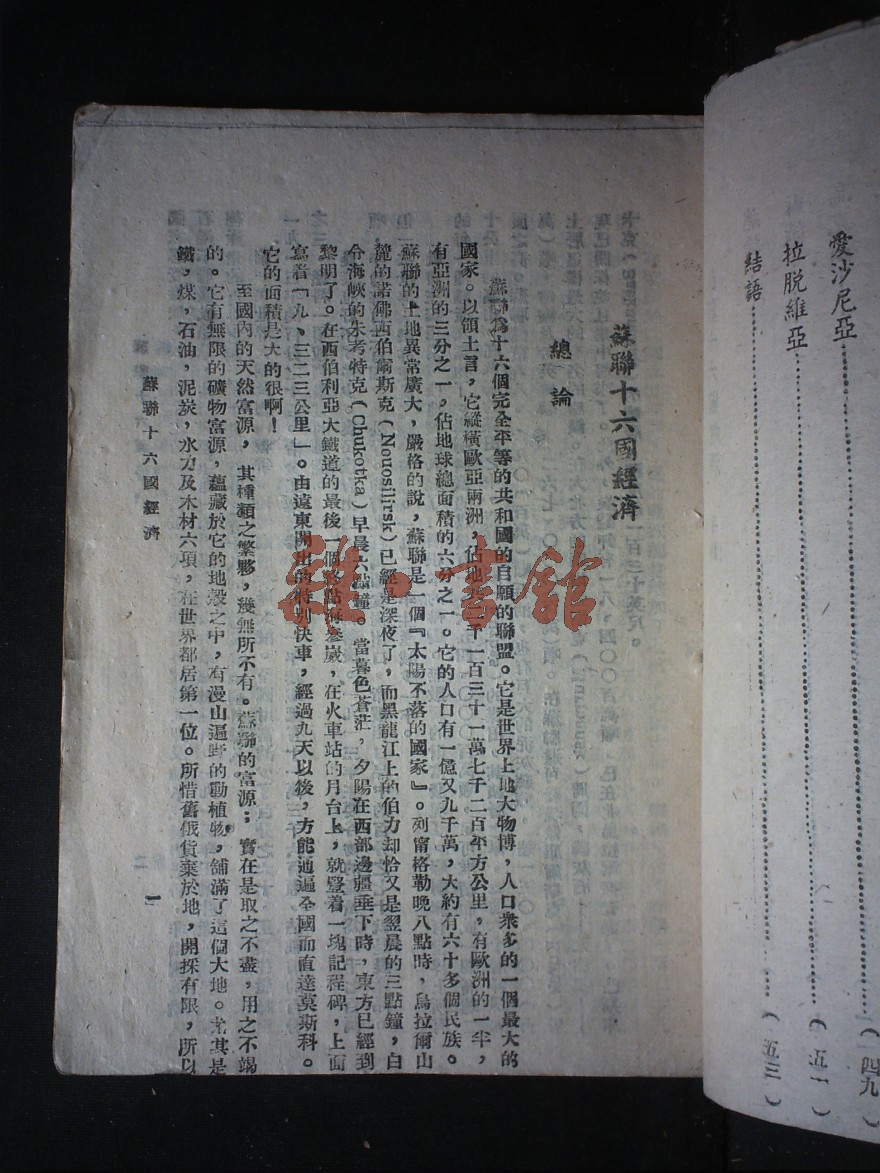 愛沙尼亞……(一四九)
拉脫維亞……(五一)
結語……(五三)
蘇聯十六國經濟
總論
蘇聯爲十六個完全平等的共和國的自願的聯盟。它是世界上地大物博，人口衆多的一個最大的
國家。以領土言，它縱橫歐亞兩洲，佔地二千一百三十一萬七千二百平方公里，有歐洲的一半，
有亞洲的三分之一，佔地球總面積的六分之一。它的人口有一億又九千萬，大約有六十多個民族。
蘇聯的土地異常廣大，嚴格的說，蘇聯是一個『太陽不落的國家』。列甯格勒晚八點時，烏拉爾山
麓的諾佛西伯爾斯克(Nouosilirsk)已經是深夜了，而黑龍江上的伯力却恰又是翌晨的三點鐘，白
令海峽的朱考特克(Chukotka)早晨六點鐘。當暮色蒼茫，夕陽在西部邊疆垂下時，東方已經到
黎明了。在西伯利亞大鐵道的最後一個終點海參崴，在火車站的月台上，就豎着一塊記程碑，上面
寫着「九、三二三公里」。由遠東開出的特別快車，經過九天以後，方能通過全國而直達莫斯科。
它的面積是大的很啊！
至國內的天然富源，其種類之繁夥，幾無所不有。蘇聯的富源；實在是取之不盡，用之不竭
的。它有無限的礦物富源，蘊藏於它的地殼之中，有漫山遍野的動植物，舖滿了這個大地。尤其是
鐵，煤，石油，泥炭，水力及木材六項，在世界都居第一位。所惜舊俄貨棄於地，開採有限，所以
蘇聯十六國經濟
一
雜·書館